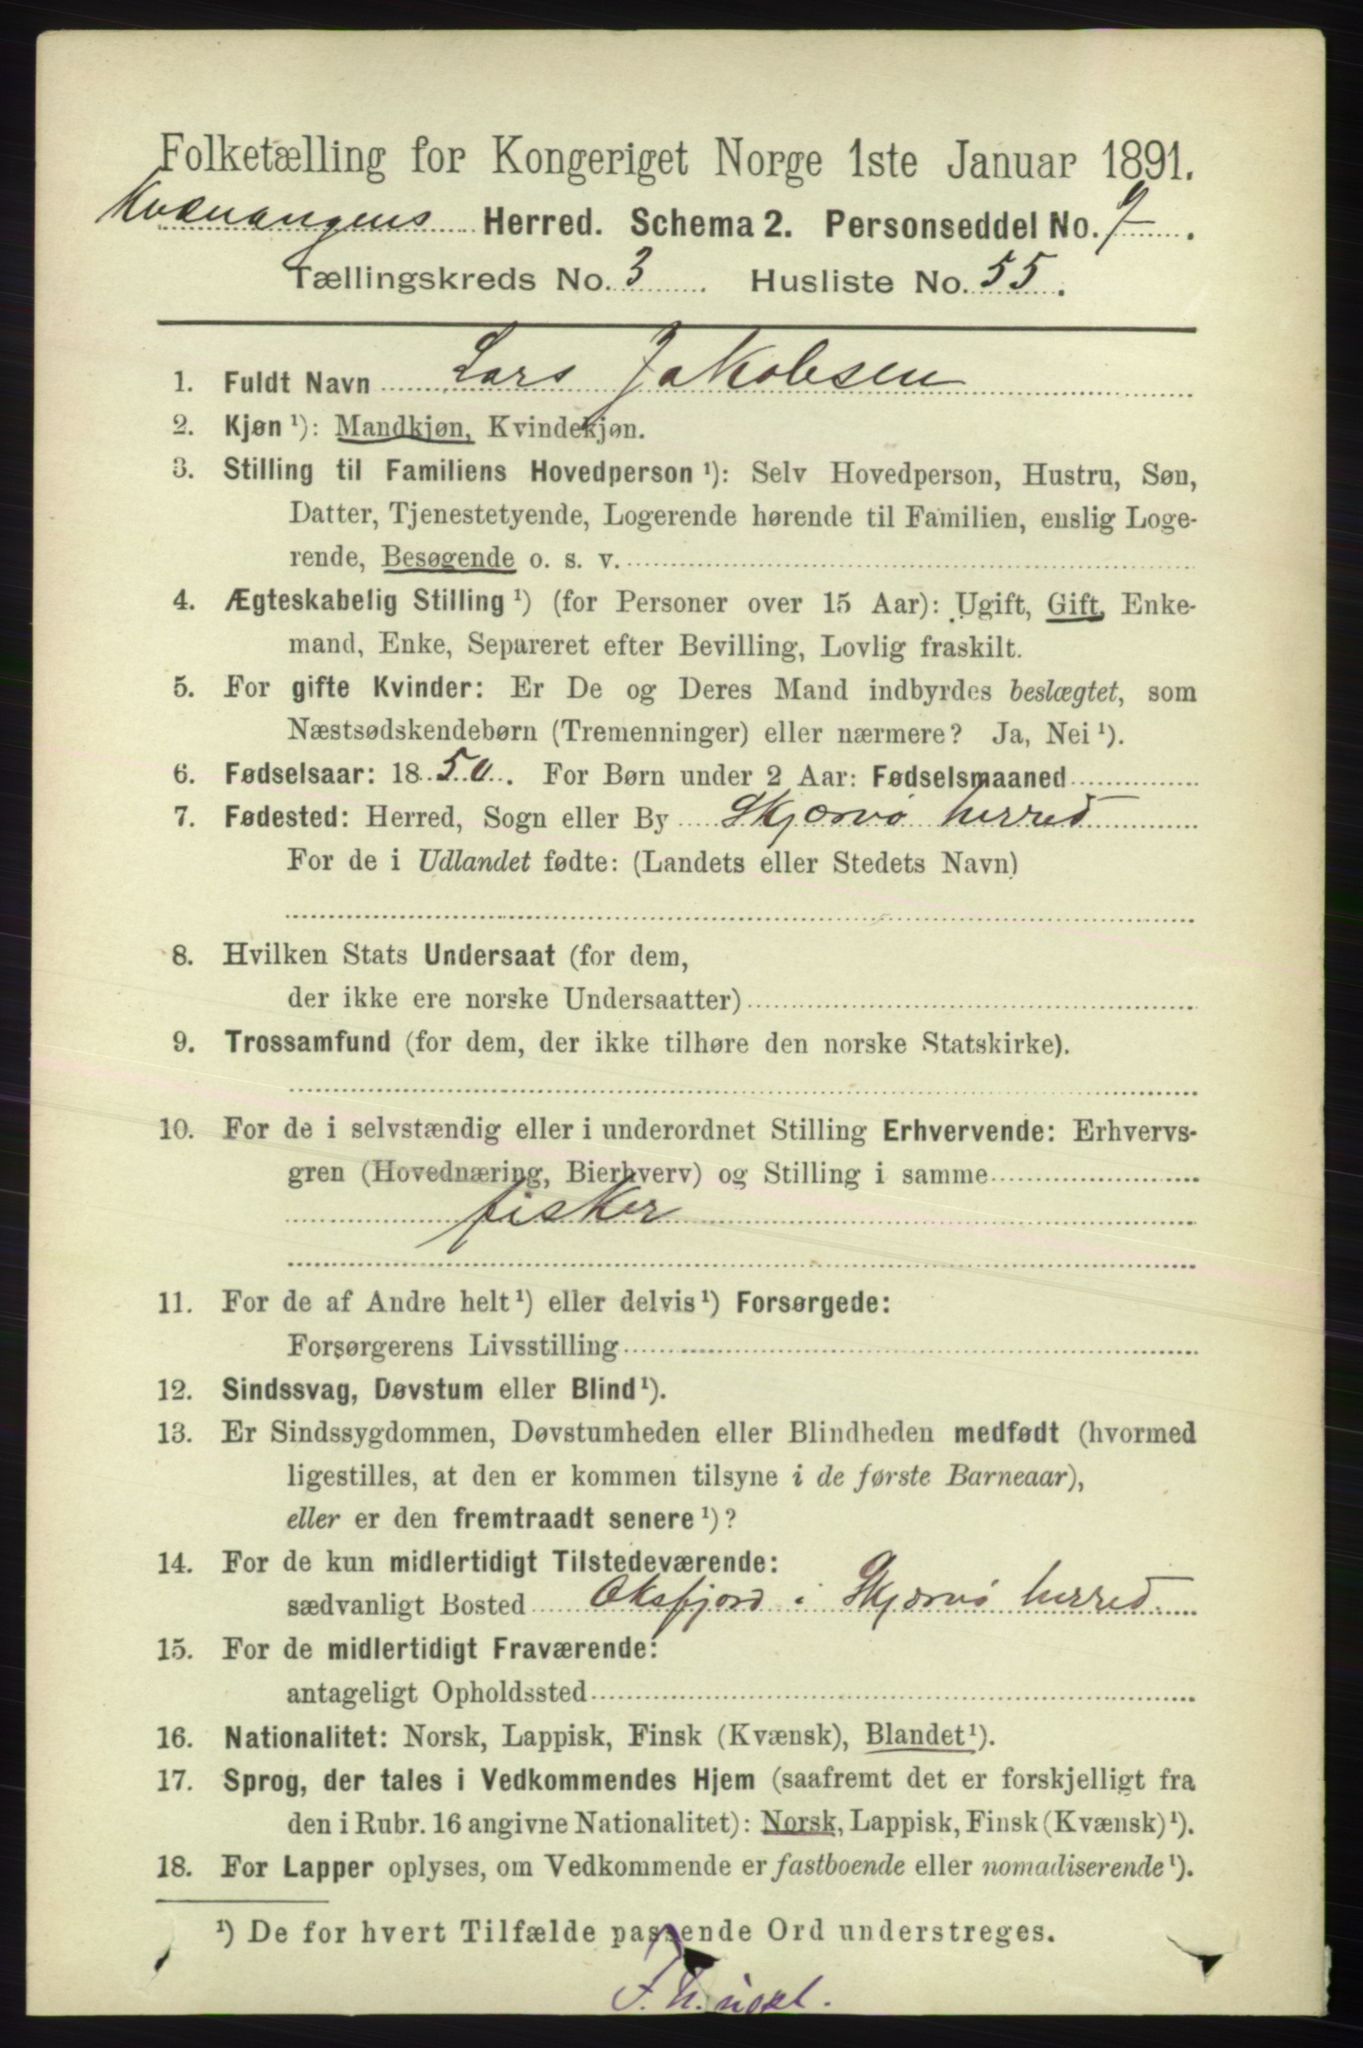 Folketælling for Kongeriget Norge 1ste Januar 1891.
Kvænangens Herred. Schema 2. Personseddel No. 9.
Tællingskreds No. 3. Husliste No. 55.
1. Fuldt Navn Lars Jakobsen
2. Kjøn ¹): Mandkjøn, Kvindekjøn.
3. Stilling til Familiens Hovedperson ¹): Selv Hovedperson, Hustru, Søn,
Datter, Tjenestetyende, Logerende hørende til Familien, enslig Loge-
rende, Besøgende o. s. v.
4. Ægteskabelig Stilling ¹) (for Personer over 15 Aar): Ugift, Gift, Enke-
mand, Enke, Separeret efter Bevilling, Lovlig fraskilt.
5. For gifte Kvinder: Er De og Deres Mand indbyrdes beslægtet, som
Næstsødskendebørn (Tremenninger) eller nærmere? Ja, Nei ¹).
6. Fødselsaar: 1850. For Børn under 2 Aar: Fødselsmaaned
7. Fødested: Herred, Sogn eller By Skjærvø herred
For de i Udlandet fødte: (Landets eller Stedets Navn)
8. Hvilken Stats Undersaat (for dem,
der ikke ere norske Undersaatter)
9. Trossamfund (for dem, der ikke tilhøre den norske Statskirke).
10. For de i selvstændig eller i underordnet Stilling Erhvervende: Erhvervs-
gren (Hovednæring, Bierhverv) og Stilling i samme
fisker
11. For de af Andre helt ¹) eller delvis ¹) Forsørgede:
Forsørgerens Livsstilling
12. Sindssvag, Døvstum eller Blind ¹).
13. Er Sindssygdommen, Døvstumheden eller Blindheden medfødt (hvormed
ligestilles, at den er kommen tilsyne i de første Barneaar),
eller er den fremtraadt senere ¹)?
14. For de kun midlertidigt Tilstedeværende:
sædvanligt Bosted Oksfjord i Skjærvø herred.
15. For de midlertidigt Fraværende:
antageligt Opholdssted
16. Nationalitet: Norsk, Lappisk, Finsk (Kvænsk), Blandet ¹).
17. Sprog, der tales i Vedkommendes Hjem (saafremt det er forskjelligt fra
den i Rubr. 16 angivne Nationalitet): Norsk, Lappisk, Finsk (Kvænsk) ¹).
18. For Lapper oplyses, om Vedkommende er fastboende eller nomadiserende ¹).
¹) De for hvert Tilfælde passende Ord understreges.